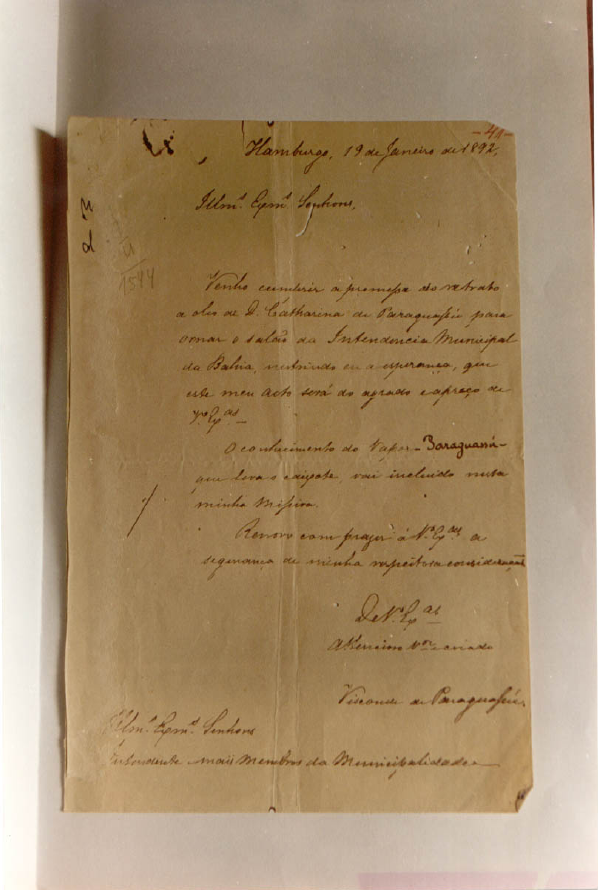 -40-
Hamburgo, 19 de Janeiro de 1892,
Illmos. Exmos. Senhores,
1544
Venho cumbrir a promessa do retrato
a oleo de D. Catharina de Paraguassú para
ornar o salão da Intendencia Municipal
da Bahia, nutrindo eu a esperança, que
este meu acto será do agrado e apreço de
V.as Ex.as
O conhecimento do Vapor "Paraguassú"
que leva o caixote, vai incluido nesta
minha missiva.
Renovo com prazer á V.as Ex.as a
segurança de minha respeitosa consideração
De V.as Ex.as
Attencioso V.or e criado
Visconde de Paraguassú.
Illmos. Exmos. Senhores
Intendente e mais Membros da Municipalidade